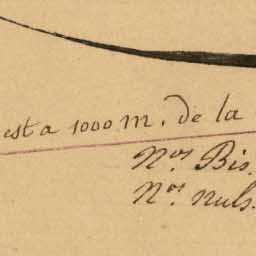 est a 1000 m. de la
Nos. Bis.
Nos. nuls.